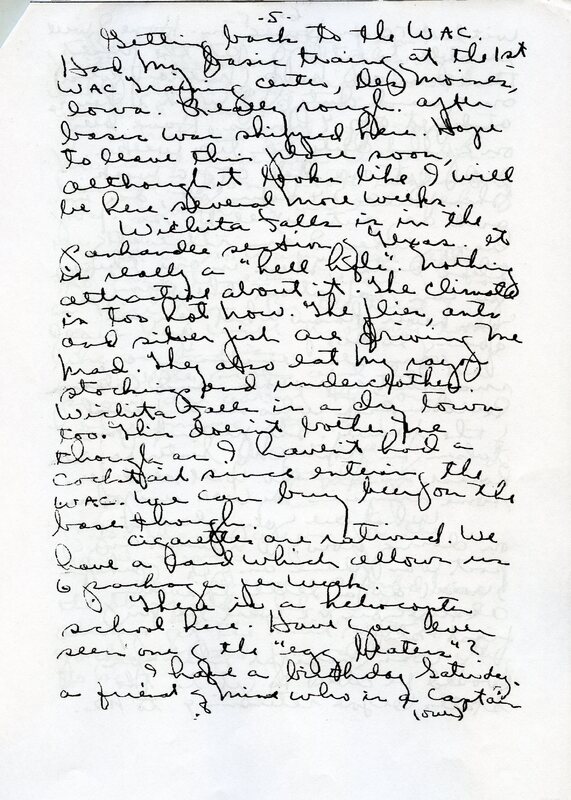 -5-
Getting back to the WAC.
Had my basic traing at the 1st
WAC Training center, Des Moines,
Iowa. Really rough. after
basic was shipped here. Hope
to leave this place soon,
although it looks like I will
be here several more weeks.
Wichita Falls is in the
panhandle section of Texas. it
is really a "hell hole". Nothing
attractive about it. The climate
is too hot now. The flies, ants
and silver fish are driving me
mad. They also eat my rayon
stockings and underclothes.
Wichita Falls is a dry town
too. This doesn't bother me
though as I haven't had a
cocktail since entering the
WAC. We can buy beer on the
base though.
Cigarettes are rationed. We
have a card which allows us
6 packages per week.
There is a heliocopter
school here. Have you ever
seen one of the "egg beaters"?
I have a birthday Saturday.
a friend of mine who is a Captain
(over)